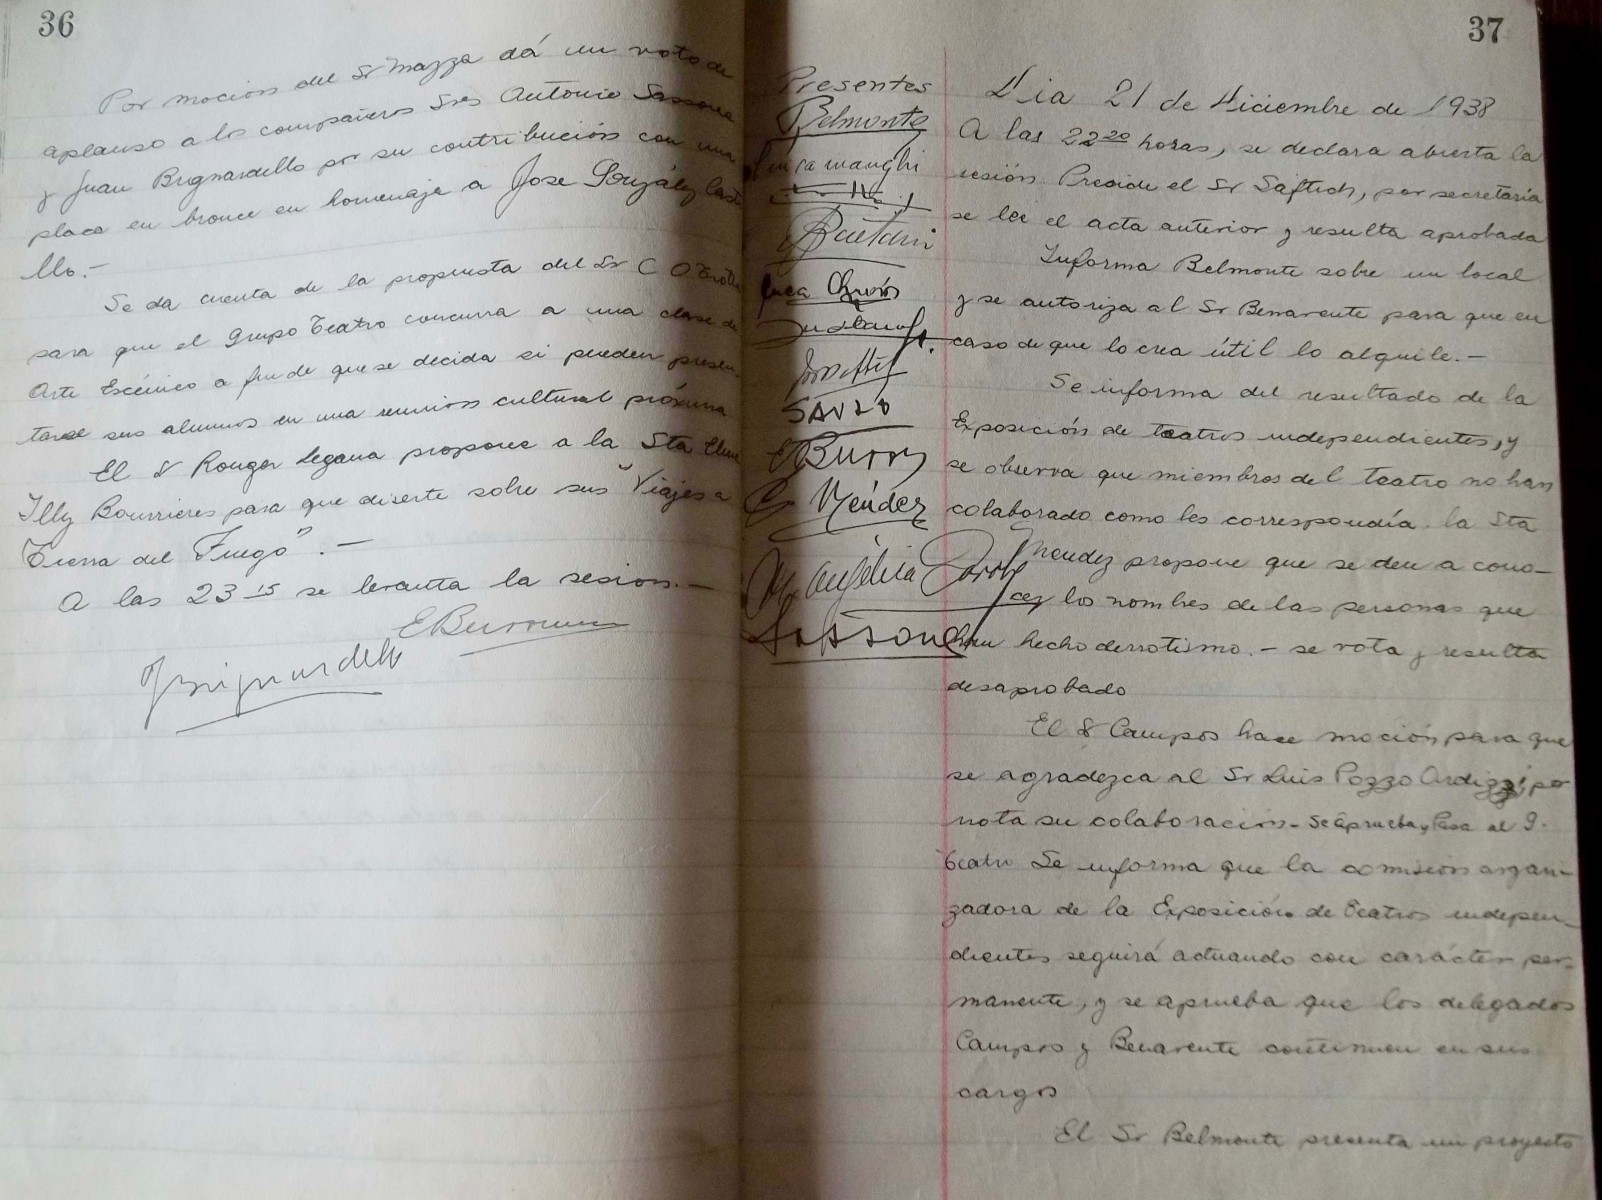 36
Por moción del Sr Mazza dá un voto de
aplauso a los compañeros Sres Antonio Sassone
y Juan Brignardello por su contribución con una
placa en bronce en homenaje a Jose González Casti
llo.-
Se da cuenta de la propuesta del Sr C O
para que el Grupo Teatro concurra a una clase de
Arte Escénico a fin de que se decida si pueden presen-
tarse sus alumnos en una reunion cultural próxima
El Sr Rouger Segana propone a la Sta
Illy Bourrieres para que diserte sobre sus "Viajes a
Tierra del Fuego".-
A las 23 15 se levanta la sesion.-
37
Presentes
Belmonte
SAVZO
Méndez
M. Angélica
Sassone
Dia 21 de Diciembre de 1938
A las 22 20 horas, se declara abierta la
sesión Preside el Sr Säftich, por secretaría
se lee el acta anterior y resulta aprobada
Informa Belmonte sobre un local
y se autoriza al Sr Benavente para que en
caso de que lo crea útil lo alquile.-
Se informa del resultado de la
Exposición de teatros independientes, y
se observa que miembros del teatro no han
colaborado como les correspondía. la Sta
Mendez propone que se den a cono-
cer los nombres de las personas que
han hecho derrotismo.- se vota y resulta
desaprobado
El Sr Campos hace moción para que
se agradezca al Sr Luis Pozzo Ardizzi por
nota su colaboracion - Se aprueba y Pasa al G.
Teatro Se informa que la comision organi-
zadora de la Exposición de Teatros indepen-
dientes seguirá actuando con carácter per-
manente, y se aprueba que los delegados
Campos y Benavente continuen en sus
cargos
El Sr Belmonte presenta un proyecto